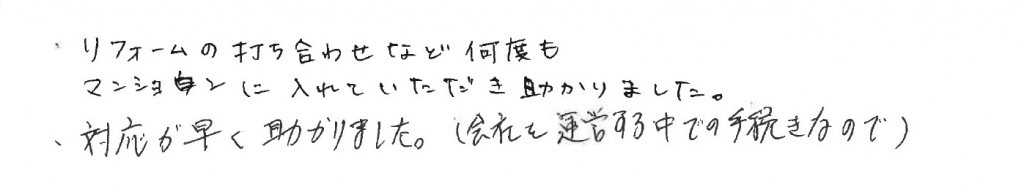 ・リフォームの打ち合わせなど何度も
マンションに入れていただき助かりました。
・対応が早く助かりました。(会社を運営する中での手続きなので)